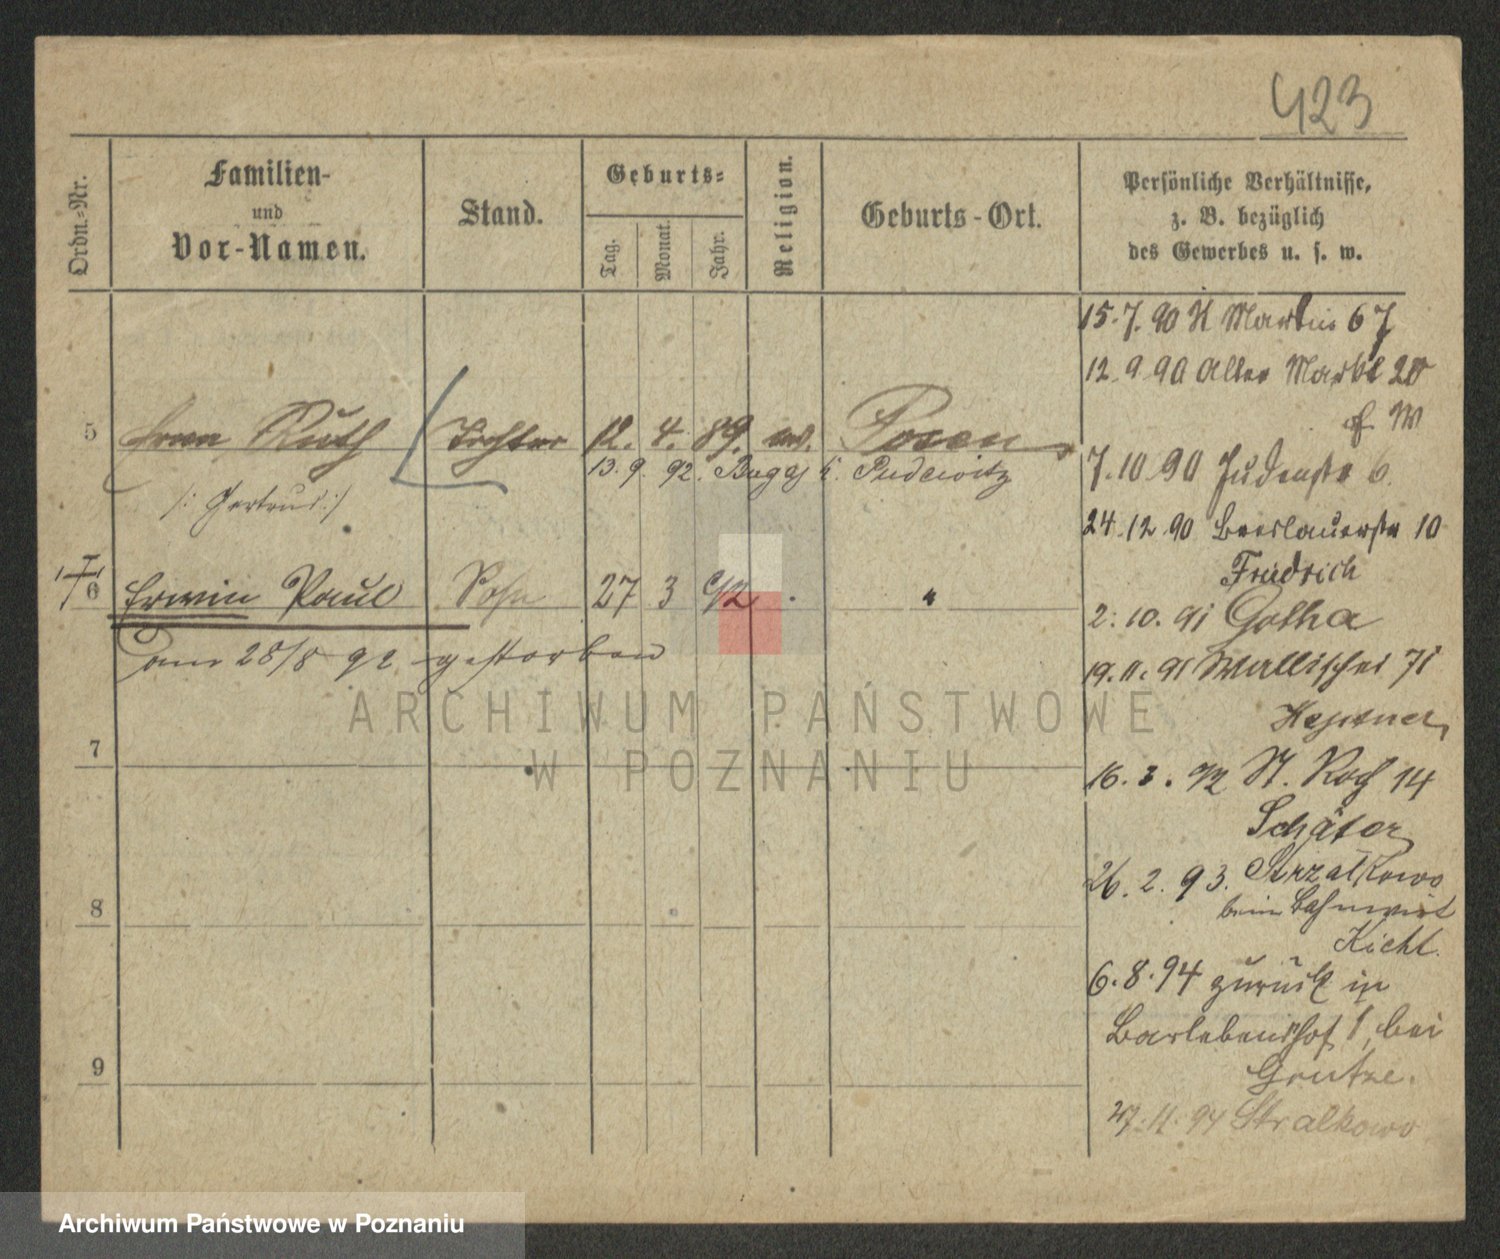 423
Ordn.-Nr.
Familien-
und
Vor-Namen.
Stand.
Geburts-
Tag.
Monat.
Jahr.
Religion.
Geburts-Ort.
Persönliche Verhältnisse,
z. B. bezüglich
des Gewerbes u. s. w.
15.7.90 St Martin 67
12.9.90 Alter Markt 20
7.10.90 Judenstr 6.
24.12.90 Breslauerstr 10
Friedrich
2.10.91 Gotha
19.11.91 Wallischei 71
16.3.92 St. Roch 14
Schäfer
26.2.93. Strzalkowo
beim Bahnwirt
Kicht.
6.8.94 zurück in
Barlebenshof 1, bei
27.11.94 Stralkowo
5 Ruth Tochter 12. 4. 89. Posen
13. 9. 92. Bugaj b. Pudewitz
/: Gertrud :/
6 Erwin Paul Sohn 27 3 92 "
am 28/8 92 gestorben
7
8
9
ARCHIWUM PAŃSTWOWE
W POZNANIU
Archiwum Państwowe w Poznaniu